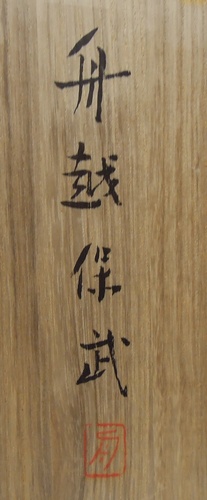 舟越保武